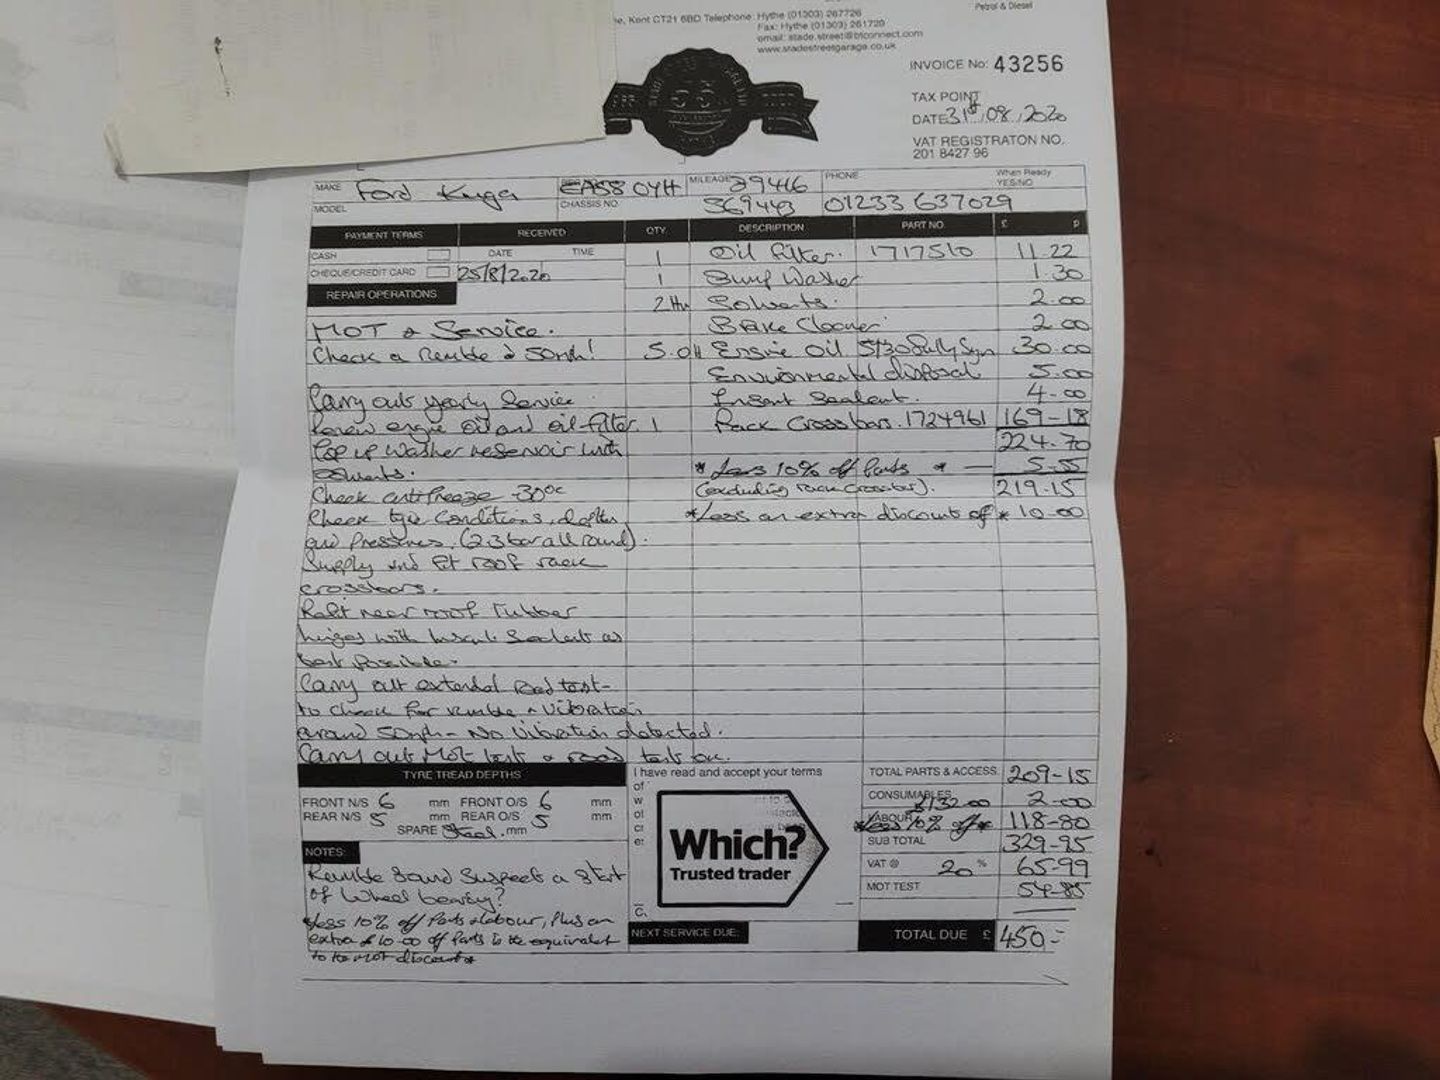 Petrol & Diesel
Kent CT21 6BD Telephone: Hythe (01303) 267726
Fax: Hythe (01303) 261720
email: stade.street@btconnect.com
www.stadestreetgarage.co.uk
INVOICE No: 43256
TAX POINT
DATE 31st/08/2020
VAT REGISTRATON NO.
201 8427 96
MAKE Ford Kuga EA58 OYH MILEAGE 29416 PHONE When Ready YES/NO
MODEL CHASSIS NO 369443 01233 637029
PAYMENT TERMS RECEIVED QTY. DESCRIPTION PART NO. £ p
CASH DATE TIME 1 Oil filter. 1717510 11.22
CHEQUE/CREDIT CARD 25/8/2020 1 Sump Washer 1.30
REPAIR OPERATIONS Solvents. 2.00
MOT & Service. Brake Cleaner 2.00
Check a Rumble @ 50mph! 5.0 Engine Oil 5/30 fully Syn 30.00
Environmental disposal 5.00
Carry out yearly Service Sealent. 4.00
Renew engine oil and oil filter. 1 Rack Crossbars. 1724961 169-18
Top up Washer reservoir with 224.70
solvents. * Less 10% off Parts * — 5.55
Check antifreeze -30°c (excluding rack crossbars). 219.15
Check tyre Conditions, depths *Less an extra discount of * 10.00
and Pressures. (2.3 bar all round).
Supply and fit roof rack
crossbars.
Refit near roof rubber
hinges with Sealent as
best possible.
Carry out extended road test-
to check for rumble & vibration
around 50mph - No Vibration detected.
Carry out Mot test & road test on.
TYRE TREAD DEPTHS I have read and accept your terms TOTAL PARTS & ACCESS. 209-15
FRONT N/S 6 mm FRONT O/S 6 mm CONSUMABLES 2-00
REAR N/S 5 mm REAR O/S 5 mm £132.00 LABOUR *Less 10% off* 118-80
SPARE Steel. mm SUB TOTAL 329-95
NOTES: Which? VAT @ 20 % 65-99
Rumble sound Suspect a start Trusted trader MOT TEST 54-85
of Wheel bearing?
*Less 10% off Parts & labour, Plus an NEXT SERVICE DUE: TOTAL DUE £ 450-
extra £10-00 off Parts to the equivalent
to the MOT discount*